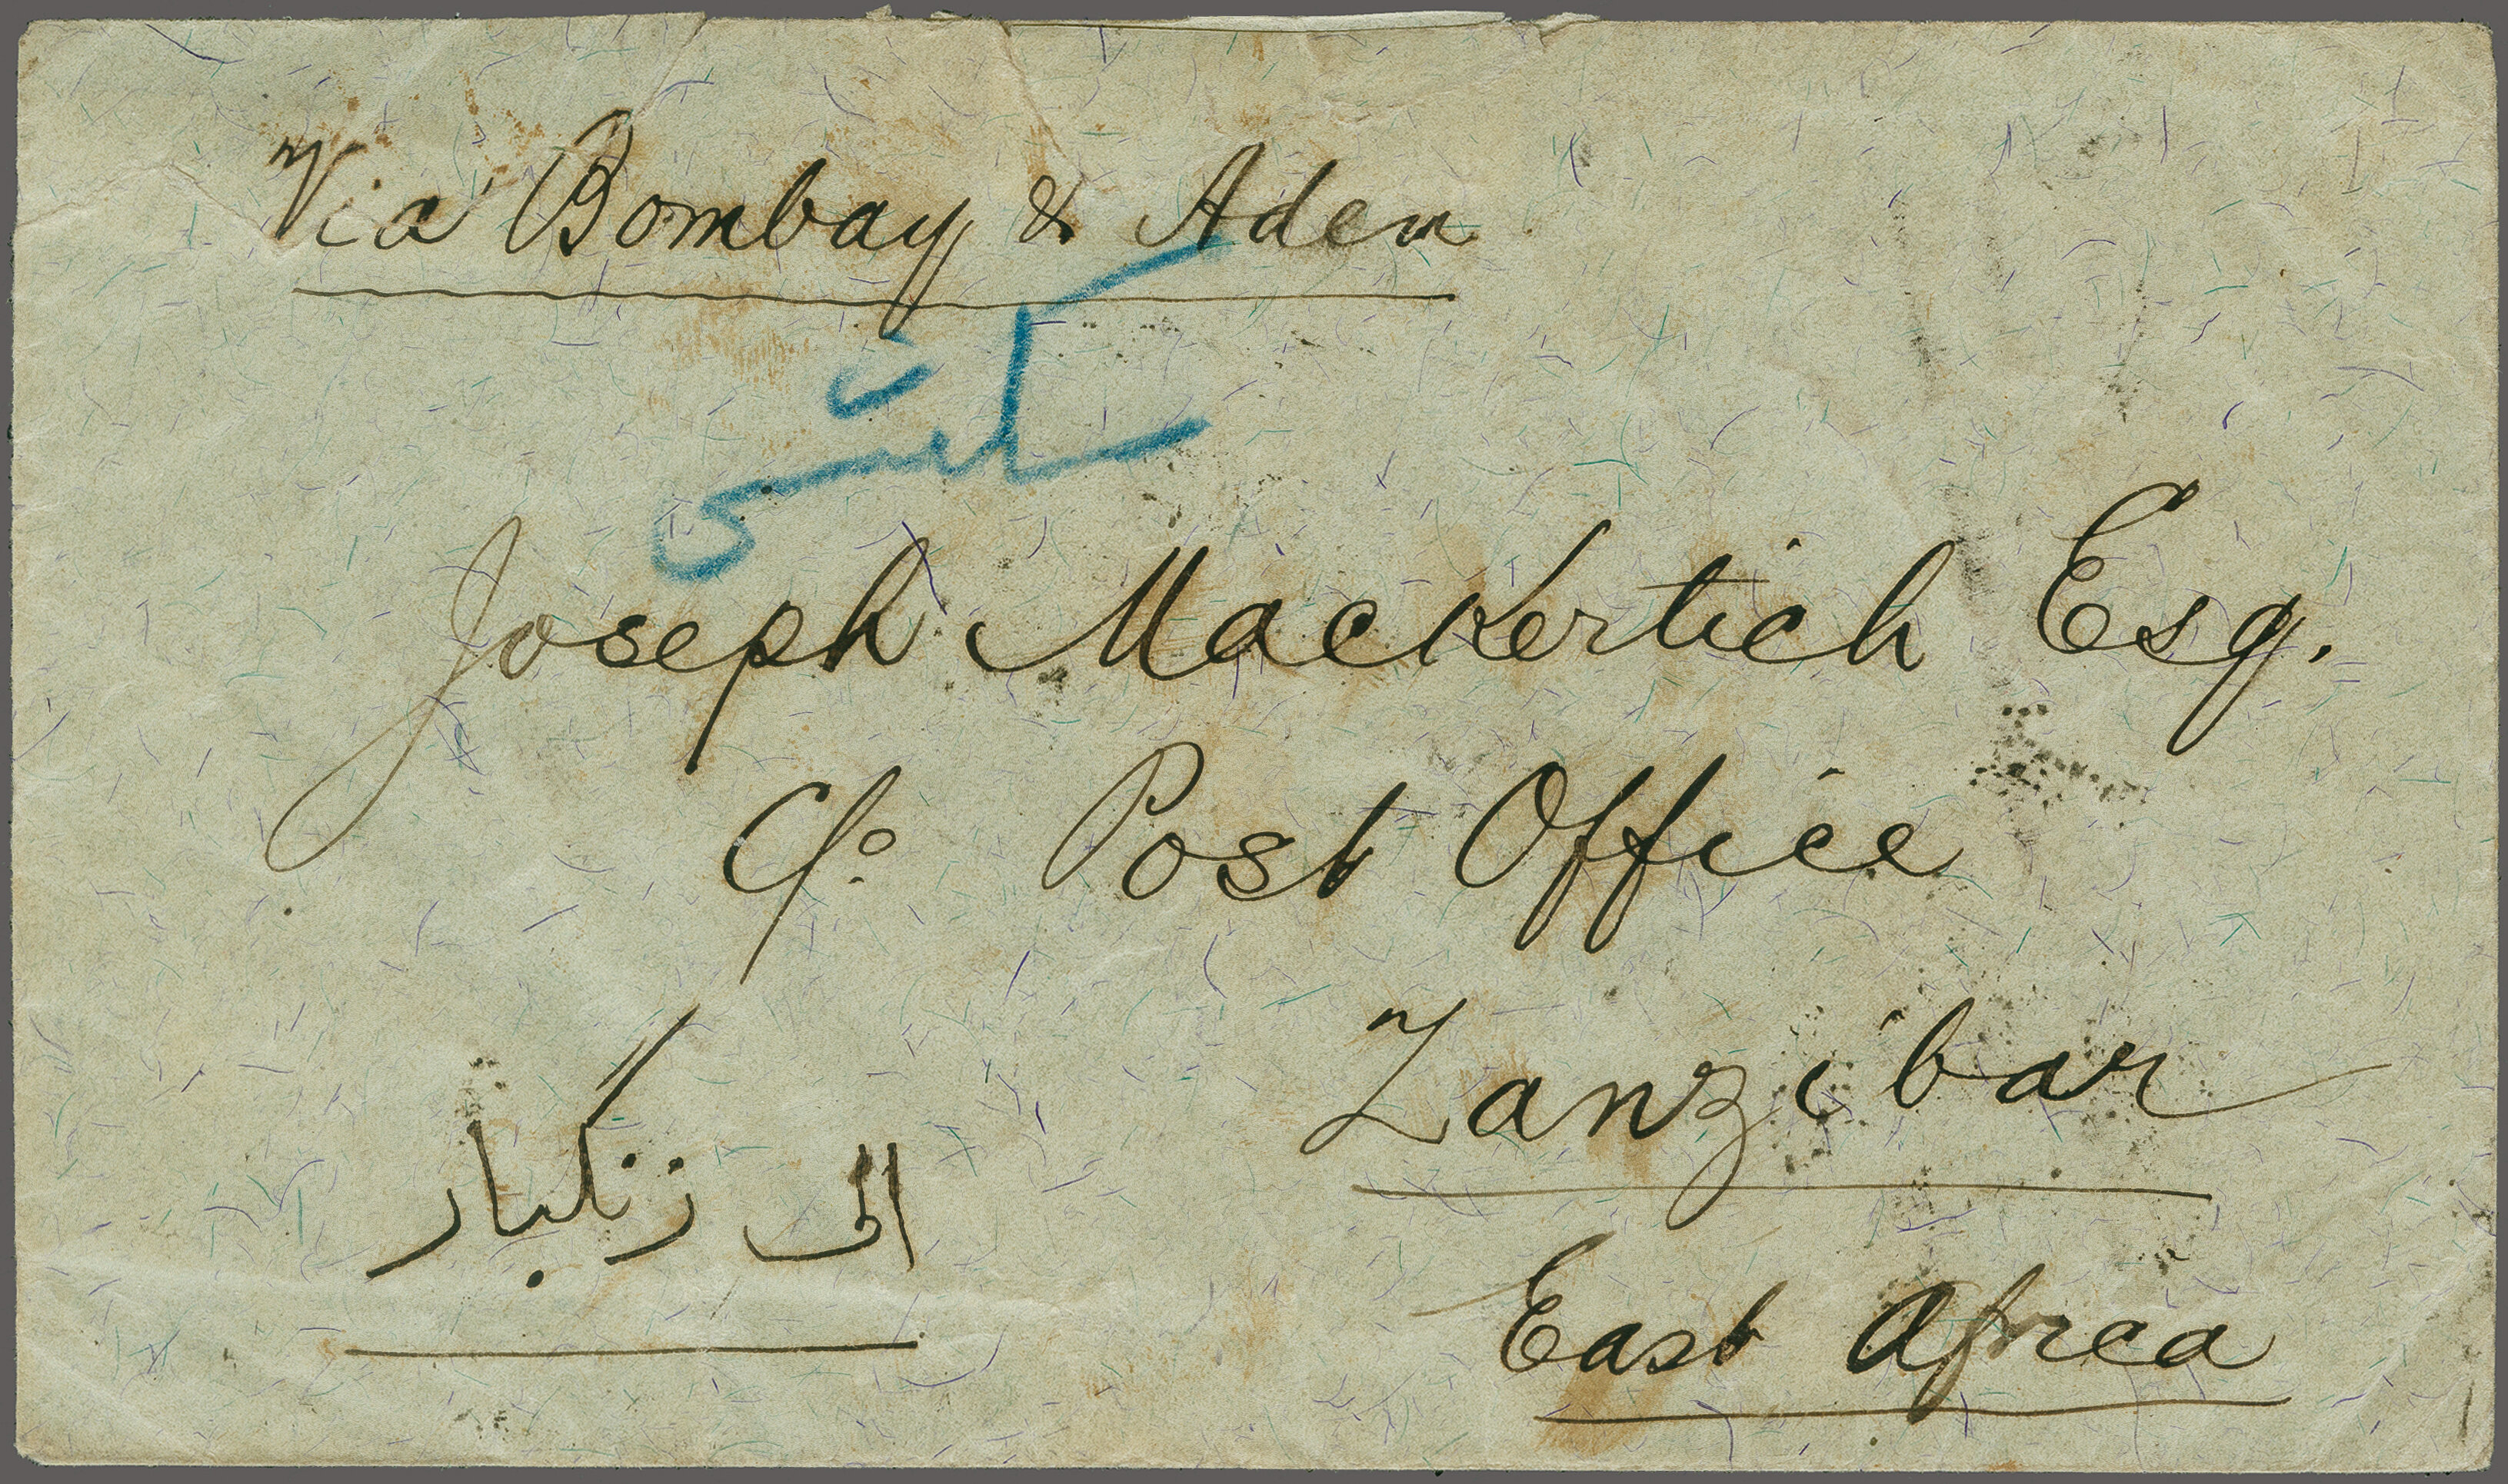 Via Bombay & Aden
Joseph Mackertich Esq.
C/o Post Office
Zanzibar
الى زنكبار
East Africa